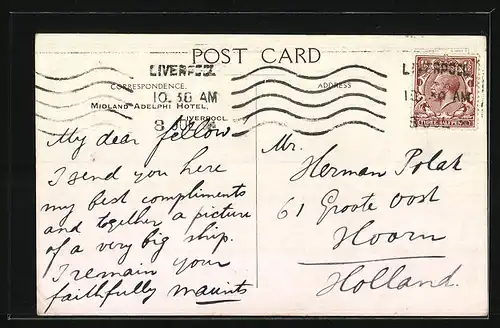 POST CARD
LIVERPOOL
CORRESPONDENCE.
10.30 AM
MIDLAND ADELPHI HOTEL,
LIVERPOOL
8 JUL
ADDRESS
My dear fellow
I send you here
my best compliments
and together a picture
of a very big ship.
I remain your
faithfully maurits
Mr.
Herman Polak
61 Groote oost
Hoorn
Holland.